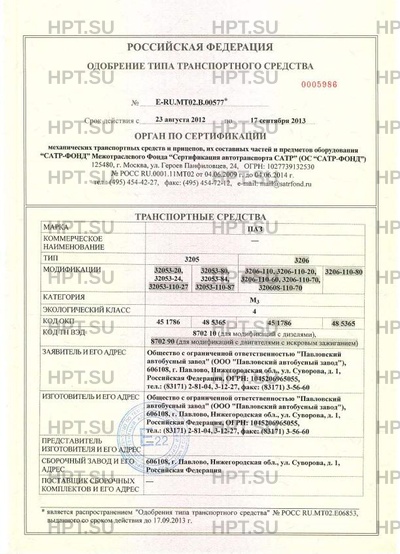 РОССИЙСКАЯ ФЕДЕРАЦИЯ
ОДОБРЕНИЕ ТИПА ТРАНСПОРТНОГО СРЕДСТВА
0005986
№ E-RU.MT02.B.00577*
Срок действия с 23 августа 2012 по 17 сентября 2013
ОРГАН ПО СЕРТИФИКАЦИИ
механических транспортных средств и прицепов, их составных частей и предметов оборудования
"САТР-ФОНД" Межотраслевого Фонда "Сертификация автотранспорта САТР" (ОС "САТР-ФОНД")
125480, г. Москва, ул. Героев Панфиловцев, 24, ОГРН: 1027739132530
№ РОСС RU.0001.11МТ02 от 04.06.2009 г. до 04.06.2014 г.
тел.: (495) 454-42-27, факс: (495) 454-72-12, e-mail: mail@satrfond.ru
ТРАНСПОРТНЫЕ СРЕДСТВА
МАРКА ПАЗ
КОММЕРЧЕСКОЕ НАИМЕНОВАНИЕ —
ТИП 3205 3206
МОДИФИКАЦИИ 32053-20, 32053-80, 3206-110, 3206-110-20, 3206-110-80
32053-24, 32053-84, 3206-110-60, 3206-110-70,
32053-110-27 32053-110-87 320608-110-70
КАТЕГОРИЯ М3
ЭКОЛОГИЧЕСКИЙ КЛАСС 4
КОД ОКП 45 1786 48 5365 45 1786 48 5365
КОД ТН ВЭД 8702 10 (для модификаций с дизелями),
8702 90 (для модификаций с двигателями с искровым зажиганием)
ЗАЯВИТЕЛЬ И ЕГО АДРЕС Общество с ограниченной ответственностью "Павловский
автобусный завод" (ООО "Павловский автобусный завод"),
606108, г. Павлово, Нижегородская обл., ул. Суворова, д. 1,
Российская Федерация, ОГРН: 1045206965055,
тел.: (83171) 2-81-04, 3-12-27, факс: (83171) 3-56-60
ИЗГОТОВИТЕЛЬ И ЕГО АДРЕС Общество с ограниченной ответственностью "Павловский
автобусный завод" (ООО "Павловский автобусный завод"),
606108, г. Павлово, Нижегородская обл., ул. Суворова, д. 1,
Российская Федерация, ОГРН: 1045206965055,
тел.: (83171) 2-81-04, 3-12-27, факс: (83171) 3-56-60
E22
ПРЕДСТАВИТЕЛЬ ИЗГОТОВИТЕЛЯ И ЕГО АДРЕС —
СБОРОЧНЫЙ ЗАВОД И ЕГО АДРЕС 606108, г. Павлово, Нижегородская обл., ул. Суворова, д. 1,
Российская Федерация
ПОСТАВЩИК СБОРОЧНЫХ КОМПЛЕКТОВ И ЕГО АДРЕС —
* является распространением "Одобрения типа транспортного средства" № РОСС RU.MT02.E06853,
выданного со сроком действия до 17.09.2013 г.
HPT.SU